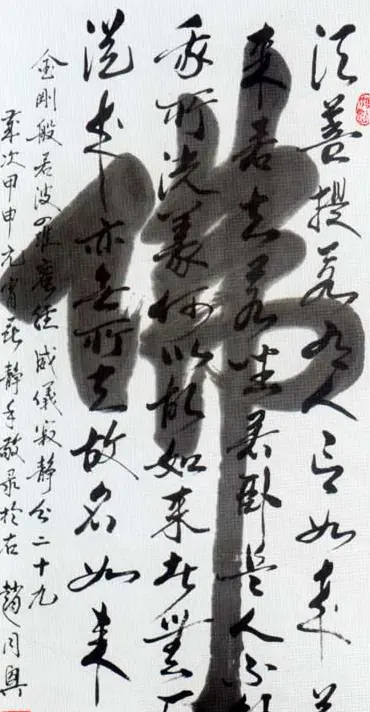 佛
須菩提若有人言如來若
來若去若坐若卧是人不解
我所説義何以故如來者無所
從來亦無所去故名如來
金剛般若波羅蜜經威儀寂静分二十九
歲次甲申元宵 静手敬录於右 趙